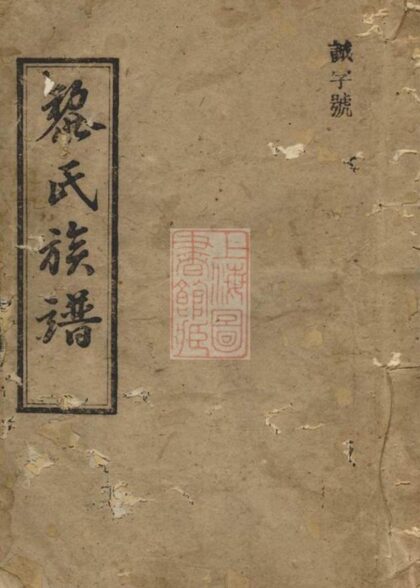 字號
上海圖
書館藏
黎氏族譜